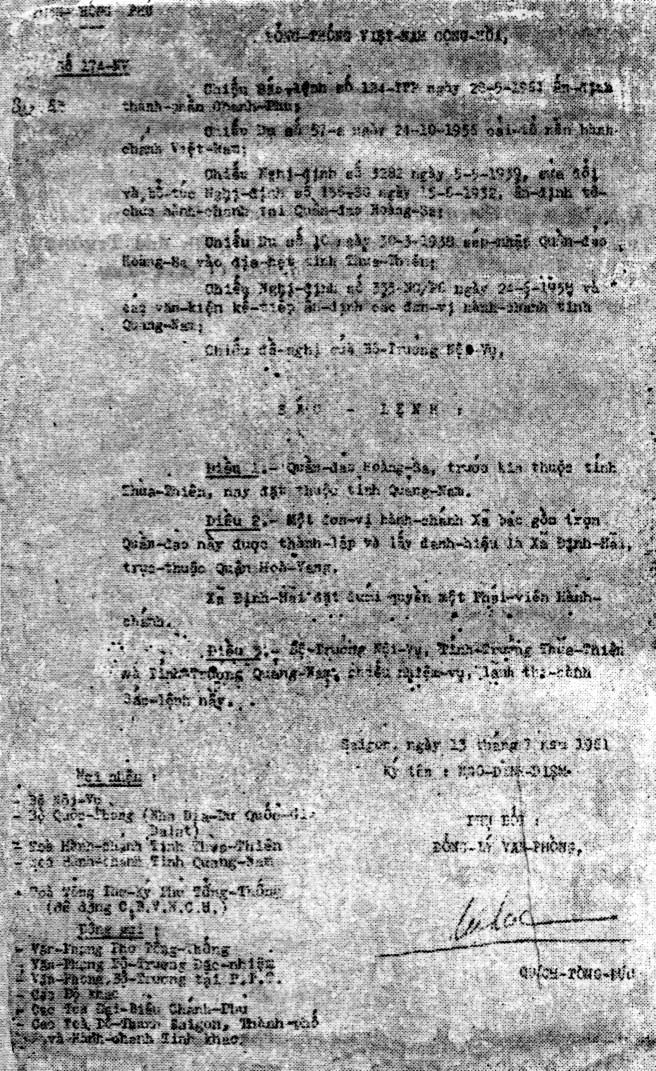 HỒNG PHÚ
TỔNG-THỐNG VIỆT-NAM CỘNG-HÒA,
Số 174-NV
Chiếu Sắc-lệnh số 124-TTP ngày 28-5-1961 ấn-định
thành-phần Chánh-Phủ;
Chiếu Dụ số 57-a ngày 24-10-1956 cải-tổ nền hành-
chánh Việt-Nam;
Chiếu Nghị-định số 3282 ngày 5-5-1939, sửa đổi
và bổ-túc Nghị-định số 156-SC ngày 15-6-1932, ấn-định tổ-
chức hành-chánh tại Quần-đảo Hoàng-Sa;
Chiếu Dụ số 10 ngày 30-3-1938 sáp-nhập Quần-đảo
Hoàng-Sa vào địa-hạt tỉnh Thừa-Thiên;
Chiếu Nghị-định số 335-NV/PC ngày 24-6-1958 và
các văn-kiện kế-tiếp ấn-định các đơn-vị hành-chánh tỉnh
Quảng-Nam;
Chiếu đề-nghị của Bộ-Trưởng Nội-Vụ,
SẮC - LỆNH :
Điều 1.- Quần-đảo Hoàng-Sa, trước kia thuộc tỉnh
Thừa-Thiên, nay đặt thuộc tỉnh Quảng-Nam.
Điều 2.- Một đơn-vị hành-chánh Xã bao gồm trọn
Quần-đảo này được thành-lập và lấy danh-hiệu là Xã Định-Hải,
trực-thuộc Quận Hoà-Vang.
Xã Định-Hải đặt dưới quyền một Phái-viên Hành-
chánh.
Điều 3.- Bộ-Trưởng Nội-Vụ, Tỉnh-Trưởng Thừa-Thiên
và Tỉnh-Trưởng Quảng-Nam, chiếu nhiệm-vụ, lãnh thi-hành
Sắc-lệnh nầy.
Saigon, ngày 13 tháng 7 năm 1961
Ký tên : NGÔ-ĐÌNH-DIỆM
Nơi nhận :
- Bộ Nội-Vụ
- Bộ Quốc-Phòng (Nha Địa-Dư Quốc-Gia
Dalat)
- Toà Hành-chánh Tỉnh Thừa-Thiên
- Toà Hành-chánh Tỉnh Quảng-Nam
- Toà Tổng Thơ-ký Phủ Tổng-Thống
(để đăng C.B.V.N.C.H.)
PHỤ BỔI :
ĐỔNG-LÝ VĂN-PHÒNG,
Đồng gửi :
- Văn-Phòng Phó Tổng-Thống
- Văn-Phòng Bộ-Trưởng Đặc-nhiệm
- Văn-Phòng Bộ-Trưởng tại P.T.T.
- Các Bộ khác
- Các Toà Đại-Biểu Chánh-Phủ
- Các Toà Đô-Thành Saigon, Thành-phố
và Hành-chánh Tỉnh khác.
QUÁCH-TÒNG-ĐỨC